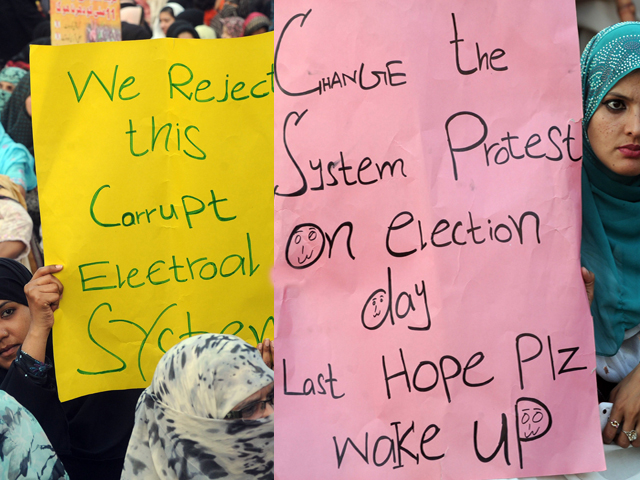 We Reject
this
Carrupt
Electroal
System
Change the
System Protest
On election
day
Last Hope Plz
wake up